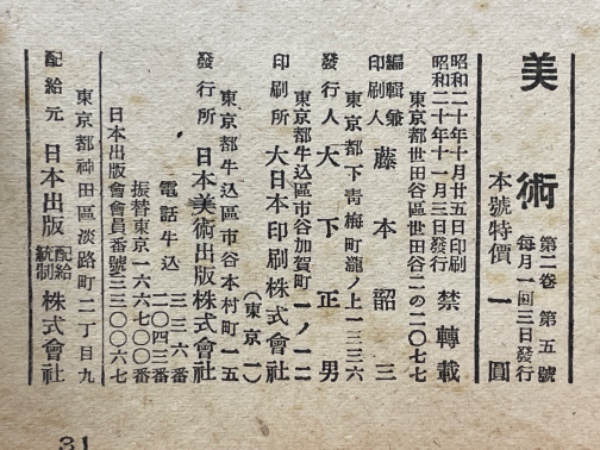 美術
第二卷 第五號
每月一回三日發行
本號特價 一圓
昭和二十年十月廿五日印刷
昭和二十年十一月三日發行
禁轉載
東京都世田谷區世田谷二の二〇七七
編輯兼
印刷人 藤本韶三
東京都下青梅町瀧ノ上一三三六
發行人 大下正男
東京都牛込區市谷加賀町一ノ一二
印刷所 大日本印刷株式會社
(東京一)
東京都牛込區市谷本村町一五
發行所 日本美術出版株式會社
電話牛込 三三六番
二〇四三番
振替東京一六六七〇〇番
日本出版會會員番號一三三〇〇六七
東京都神田區淡路町二丁目九
配給元 日本出版配給統制株式會社
31